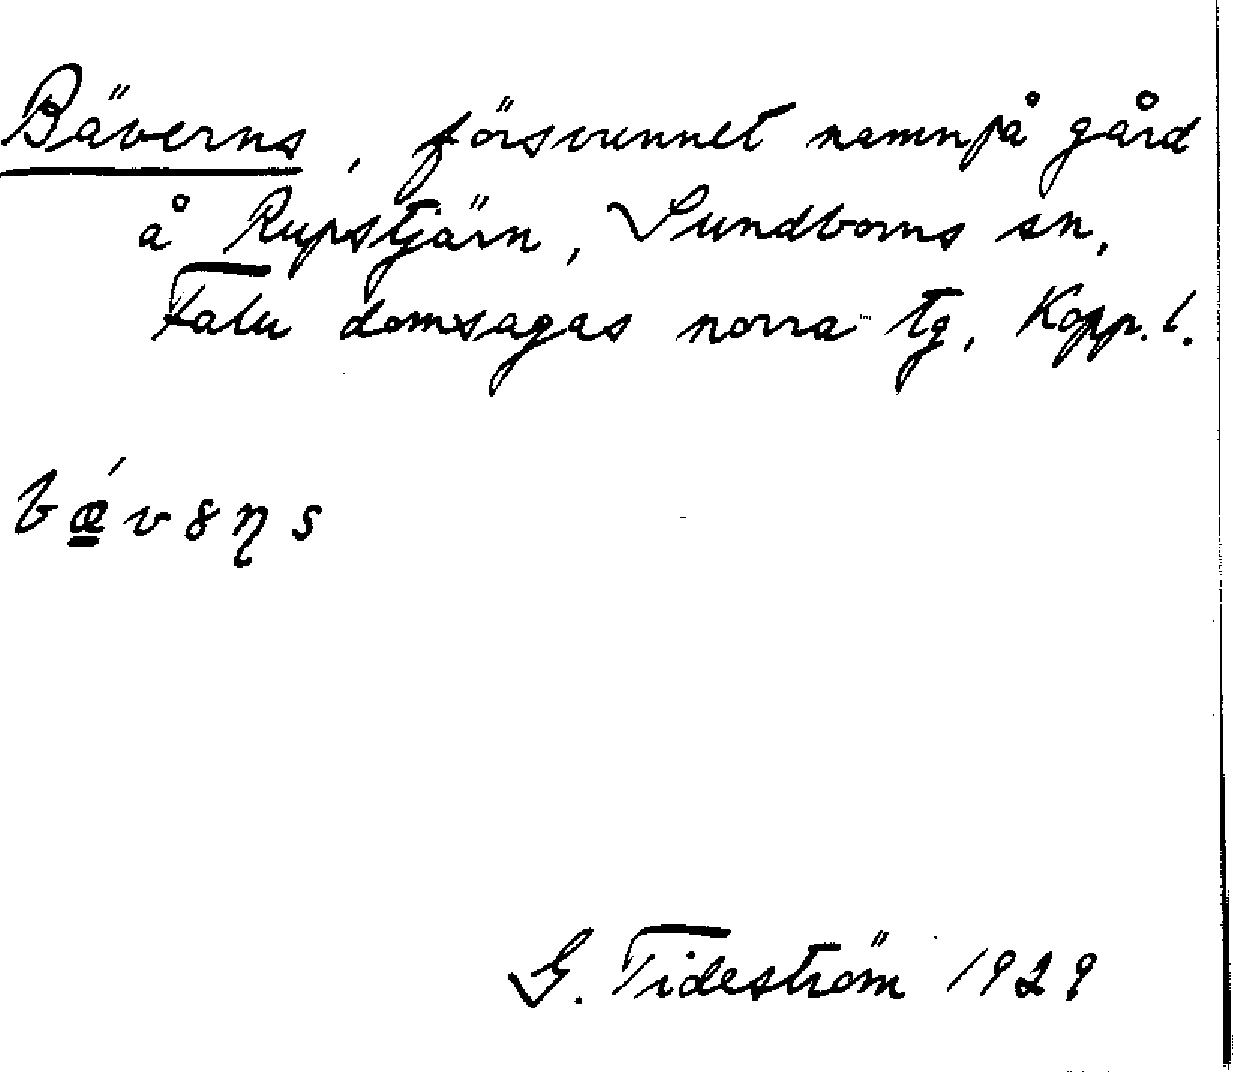 Bäverns, försvunnet namn på gård
å Rupstjärn, Sundborns sn,
Falu domsagas norra tg, Kopp. l.
bǽv8ɳs
G. Tideström 1929